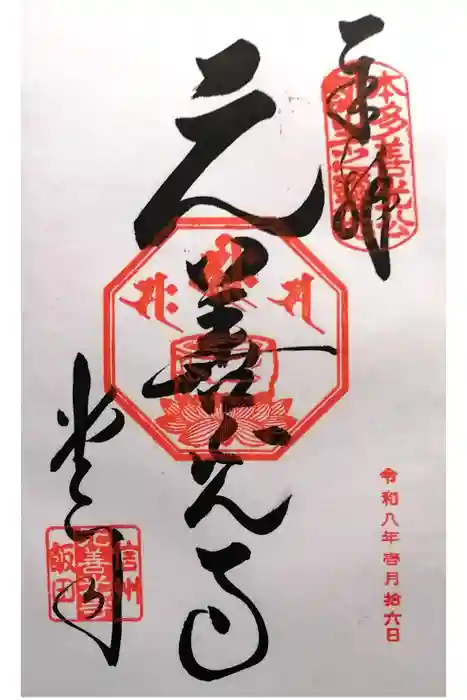 奉拝
本多善光公
令和八年壱月拾六日
元善光寺
信州
元善光寺
飯田